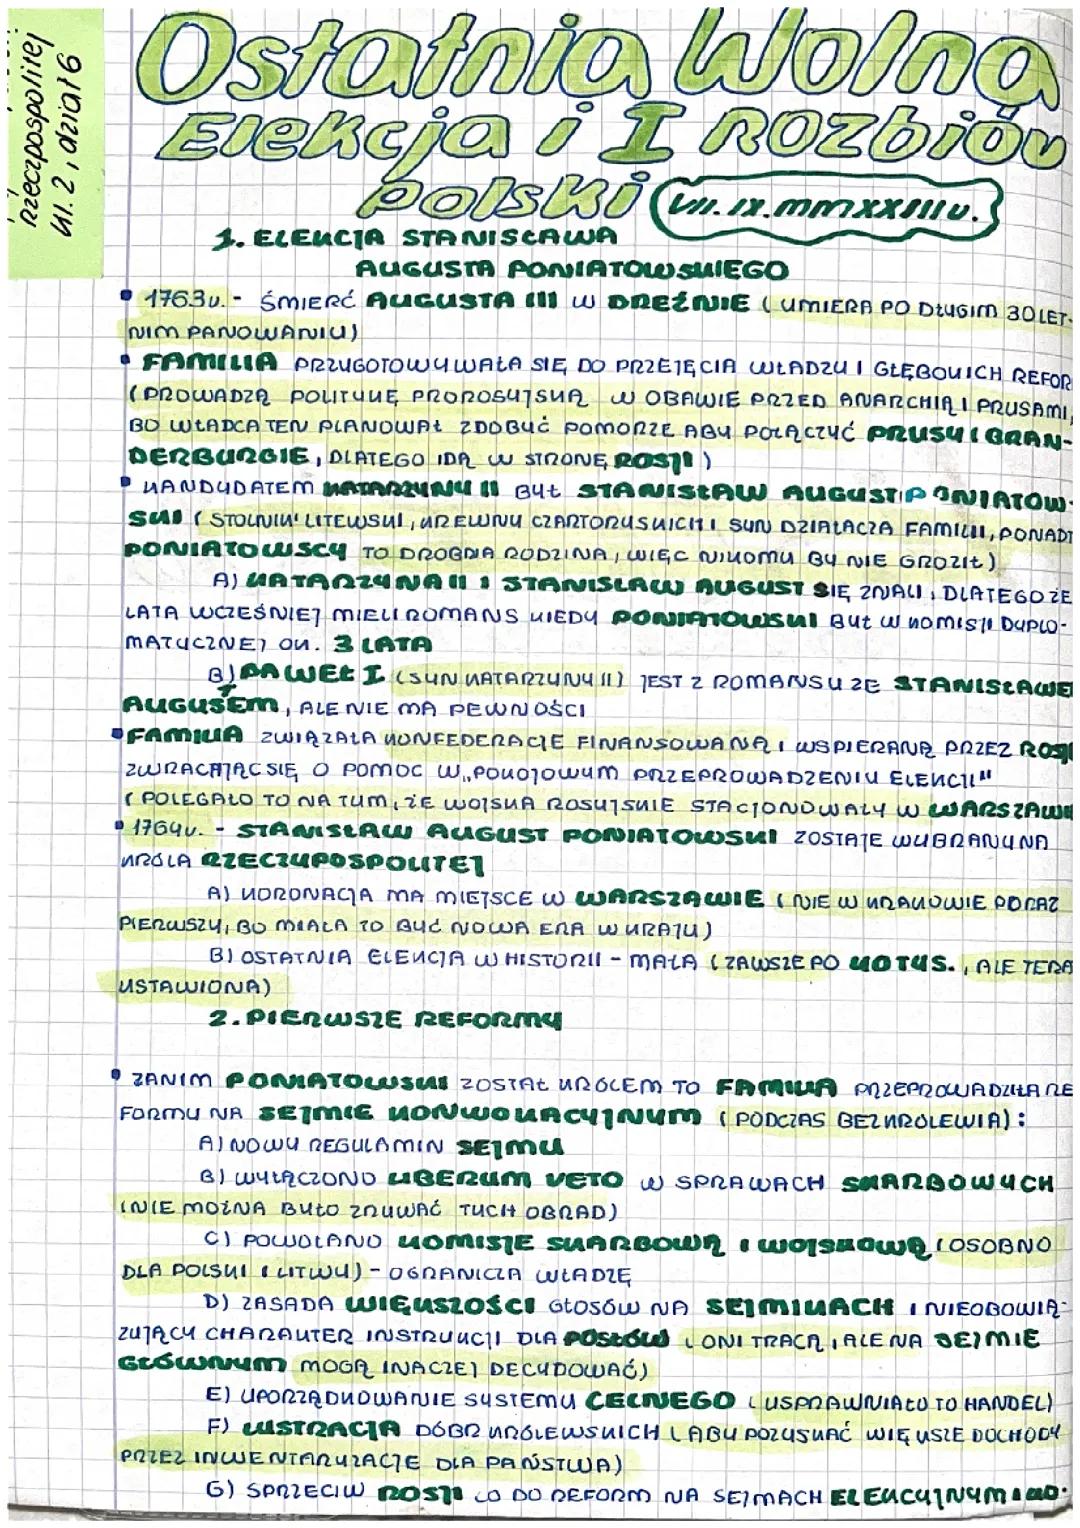 Rzeczpospolitej
kl. 2, dział 6
Ostatnia Wolna
Elekcja i I Rozbiór
Polski
VII. IX. MMXXIII r.
1. ELEKCJA STANISŁAWA
AUGUSTA PONIATOWSKIEGO
• 1763r. - ŚMIERĆ AUGUSTA III W DREŹNIE (UMIERA PO DŁUGIM 30 LET-
NIM PANOWANIU)
• FAMILIA PRZYGOTOWYWAŁA SIĘ DO PRZEJĘCIA WŁADZY I GŁĘBOKICH REFOR
(PROWADZĄ POLITYKĘ PROROSYJSKĄ W OBAWIE PRZED ANARCHIĄ I PRUSAMI,
BO WŁADCA TEN PLANOWAŁ ZDOBYĆ POMORZE ABY POŁĄCZYĆ PRUSY I BRAN-
DERBURGIE, DLATEGO IDĄ W STRONĘ ROSJI)
• KANDYDATEM KATARZYNY II BYŁ STANISŁAW AUGUST PONIATOW-
SKI (STOLNIK LITEWSKI, KREWNY CZARTORYSKICH I SYN DZIAŁACZA FAMILII, PONADT
PONIATOWSCY TO DROBNA RODZINA, WIĘC NIKOMU BY NIE GROZIŁ)
A) KATARZYNA II I STANISLAW AUGUST SIĘ ZNALI, DLATEGO ŻE
LATA WCZEŚNIEJ MIELI ROMANS KIEDY PONIATOWSKI BYŁ W KOMISJI DYPLO-
MATYCZNEJ OK. 3 LATA
B) PAWEŁ I (SYN KATARZYNY II) JEST Z ROMANSU ZE STANISŁAWE
AUGUSTEM, ALE NIE MA PEWNOŚCI
• FAMILIA ZWIĄZAŁA KONFEDERACJE FINANSOWANĄ I WSPIERANĄ PRZEZ ROSJ
ZWRACAJĄC SIĘ O POMOC W „POKOJOWYM PRZEPROWADZENIU ELEKCJI"
(POLEGAŁO TO NA TYM, ŻE WOJSKA ROSYJSKIE STACJONOWAŁY W WARSZAWI
• 1764r. - STANISŁAW AUGUST PONIATOWSKI ZOSTAJE WYBRANY NA
KRÓLA RZECZYPOSPOLITEJ
A) KORONACJA MA MIEJSCE W WARSZAWIE (NIE W KRAKOWIE PO RAZ
PIERWSZY, BO MIAŁA TO BYĆ NOWA ERA W KRAJU)
B) OSTATNIA ELEKCJA W HISTORII - MAŁA (ZAWSZE PO KOTYS., ALE TERA
USTAWIONA)
2. PIERWSZE REFORMY
• ZANIM PONIATOWSKI ZOSTAŁ KRÓLEM TO FAMILIA PRZEPROWADZIŁA RE
FORMY NA SEJMIE KONWOKACYJNYM (PODCZAS BEZKRÓLEWIA):
A) NOWY REGULAMIN SEJMU
B) WYŁĄCZONO LIBERUM VETO W SPRAWACH SKARBOWYCH
(NIE MOŻNA BYŁO ZRYWAĆ TYCH OBRAD)
C) POWOŁANO KOMISJE SKARBOWĄ I WOJSKOWĄ (OSOBNO
DLA POLSKI I LITWY) - OGRANICZA WŁADZĘ
D) ZASADA WIĘKSZOŚCI GŁOSÓW NA SEJMIKACH I NIEOBOWIĄ-
ZUJĄCY CHARAKTER INSTRUKCJI DLA POSŁÓW (ONI TRACĄ, ALE NA SEJMIE
GŁÓWNYM MOGĄ INACZEJ DECYDOWAĆ)
E) UPORZĄDKOWANIE SYSTEMU CELNEGO (USPRAWNIAŁO TO HANDEL)
F) LUSTRACJA DÓBR KRÓLEWSKICH (ABY POZYSKAĆ WIĘKSZE DOCHODY
PRZEZ INWENTARYZACJE DLA PAŃSTWA)
G) SPRZECIW ROSJI CO DO REFORM NA SEJMACH ELEKCYJNYM I KO-